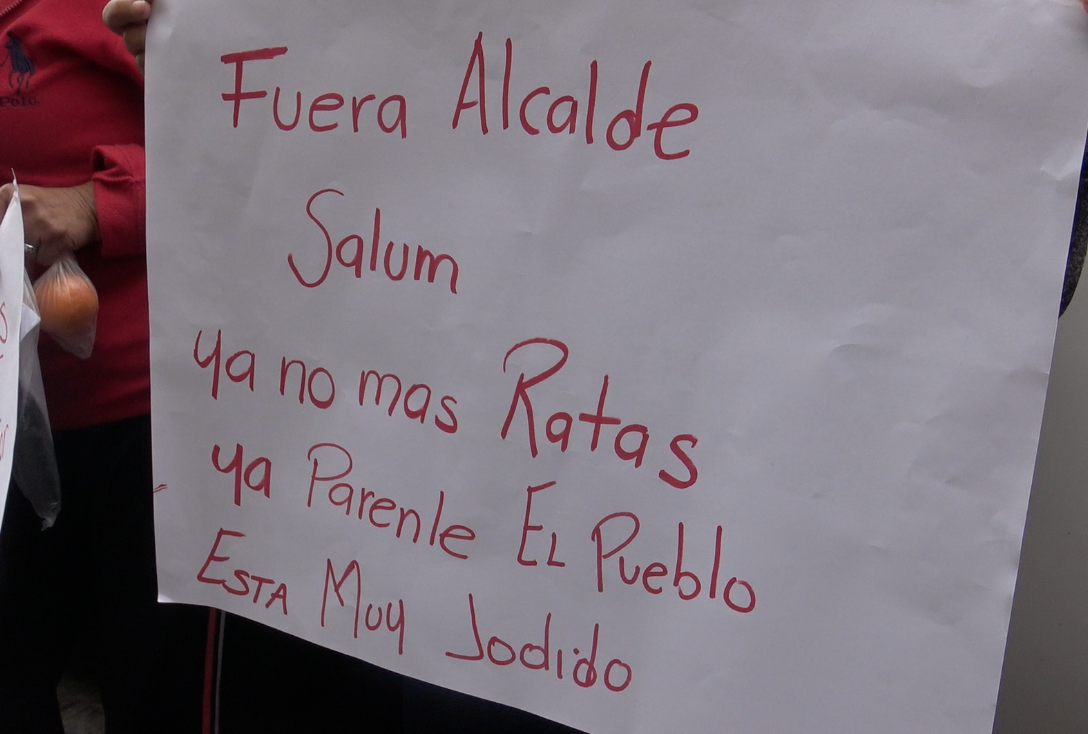 Polo
Fuera Alcalde
Salum
ya no mas Ratas
ya Parenle EL Pueblo
ESTA Muy Jodido